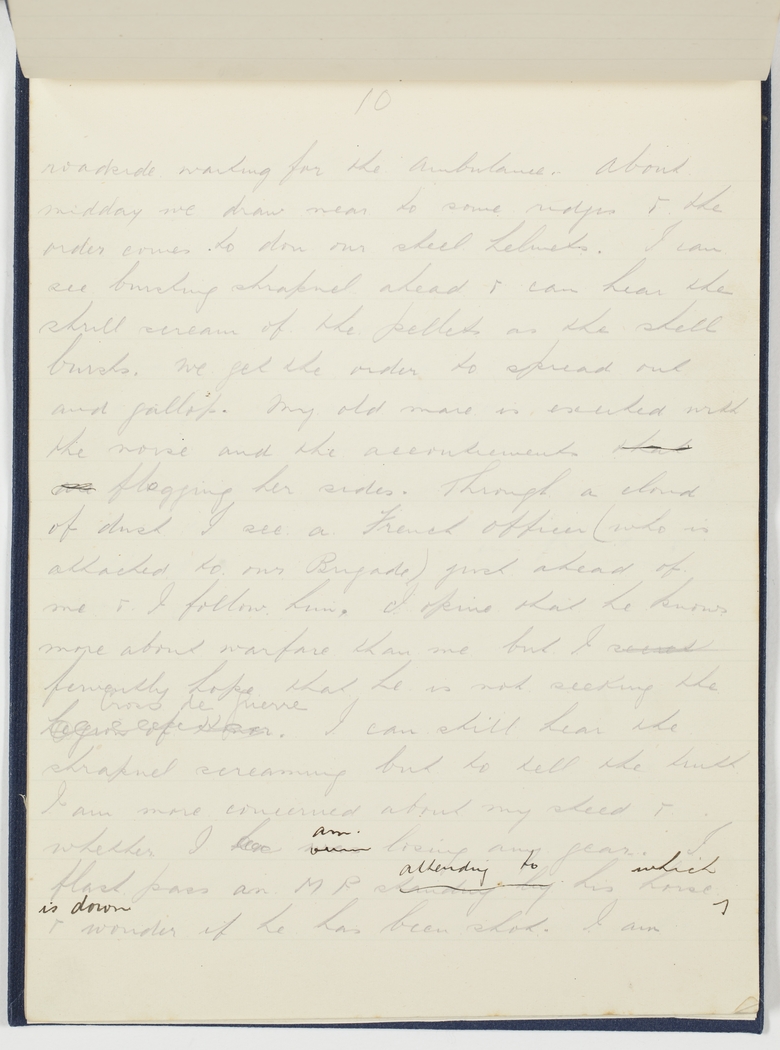 10
roadside waiting for the ambulance. About
midday we draw near to some ridges & the
order comes to don our steel helmets. I can
see bursting shrapnel ahead & can hear the
shrill scream of the pellets as the shell
bursts. We get the order to spread out
and gallop. My old mare is excited with
the noise and the accoutrements that
flogging her sides. Through a cloud
of dust I see a French Officer (who is
attached to our Brigade) just ahead of
me & I follow him. I opine that he knows
more about warfare than me but I secret
fervently hope that he is not seeking the
Croix de Guerre
Legion of. I can still hear the
shrapnel screaming but to tell the truth
I am more concerned about my steed &
am.
whether I losing any gear. I
attending to which
flash pass an M P standing by his horse
is down
& wonder if he has been shot. I am